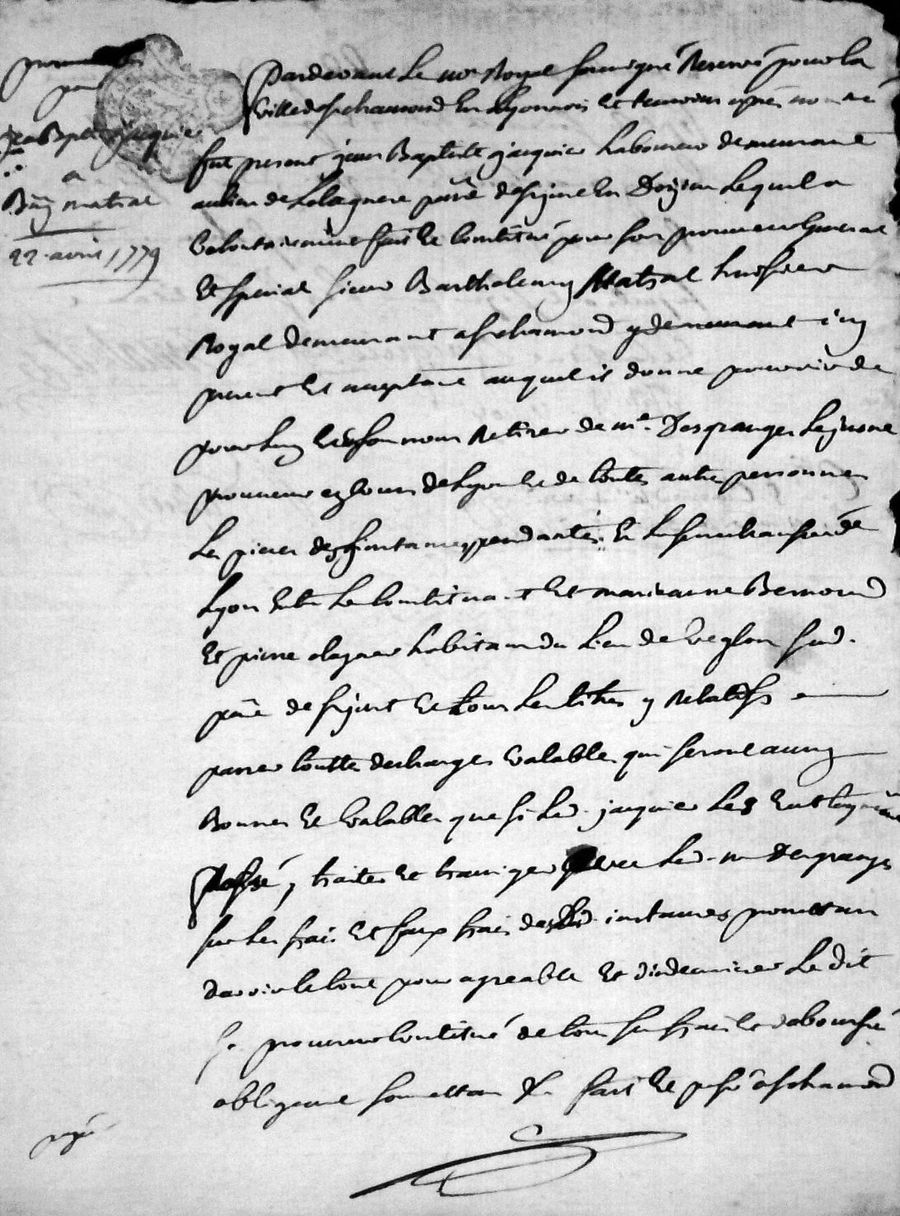 par
Jean Bapte jacquier
a
Bmy matral
22 avril 1779
Pardevant Le nore Royal soussigné Reservé pour la
ville de st chamond En Lyonnois et temoins après nommé
fut present jean Baptiste jacquier Laboureur demeurant
au lieu de parre de st jure En Lequel a
volontairement fait et Constitué pour son procureur General
Et special sieur Barthelemy Matral huissier
Royal demeurant a st chamond y demeurant icy
present Et acceptant auquel il donne pouvoir de
pour Luy Et En son nom Retirer de me. Desgranges Lejeune
procureur ez Cours de Lyon Et de toutes autre personnes
Les pieces des instances pendantes En La senechaussée de
Lyon Entre Le Constituant Et marianne Bernond
Et pierre habitans du Lieu de sud.
parre de st jure Et tous Les titres y Relatifs
passer toutte decharges valables qui seront aussy
Bonnes Et valables que si Led. jacquier Les Eut luy meme
Passé, traiter Et transiger avec Led. me Desgranges
sur Les frais Et faux frais desd. instances promettant
davoir le tout pour agreable Et dindemniser Le dit
sr. procureur Constitué de tous ses frais Et deboursés
obligeant soumettant &. fait Et passé a st chamond